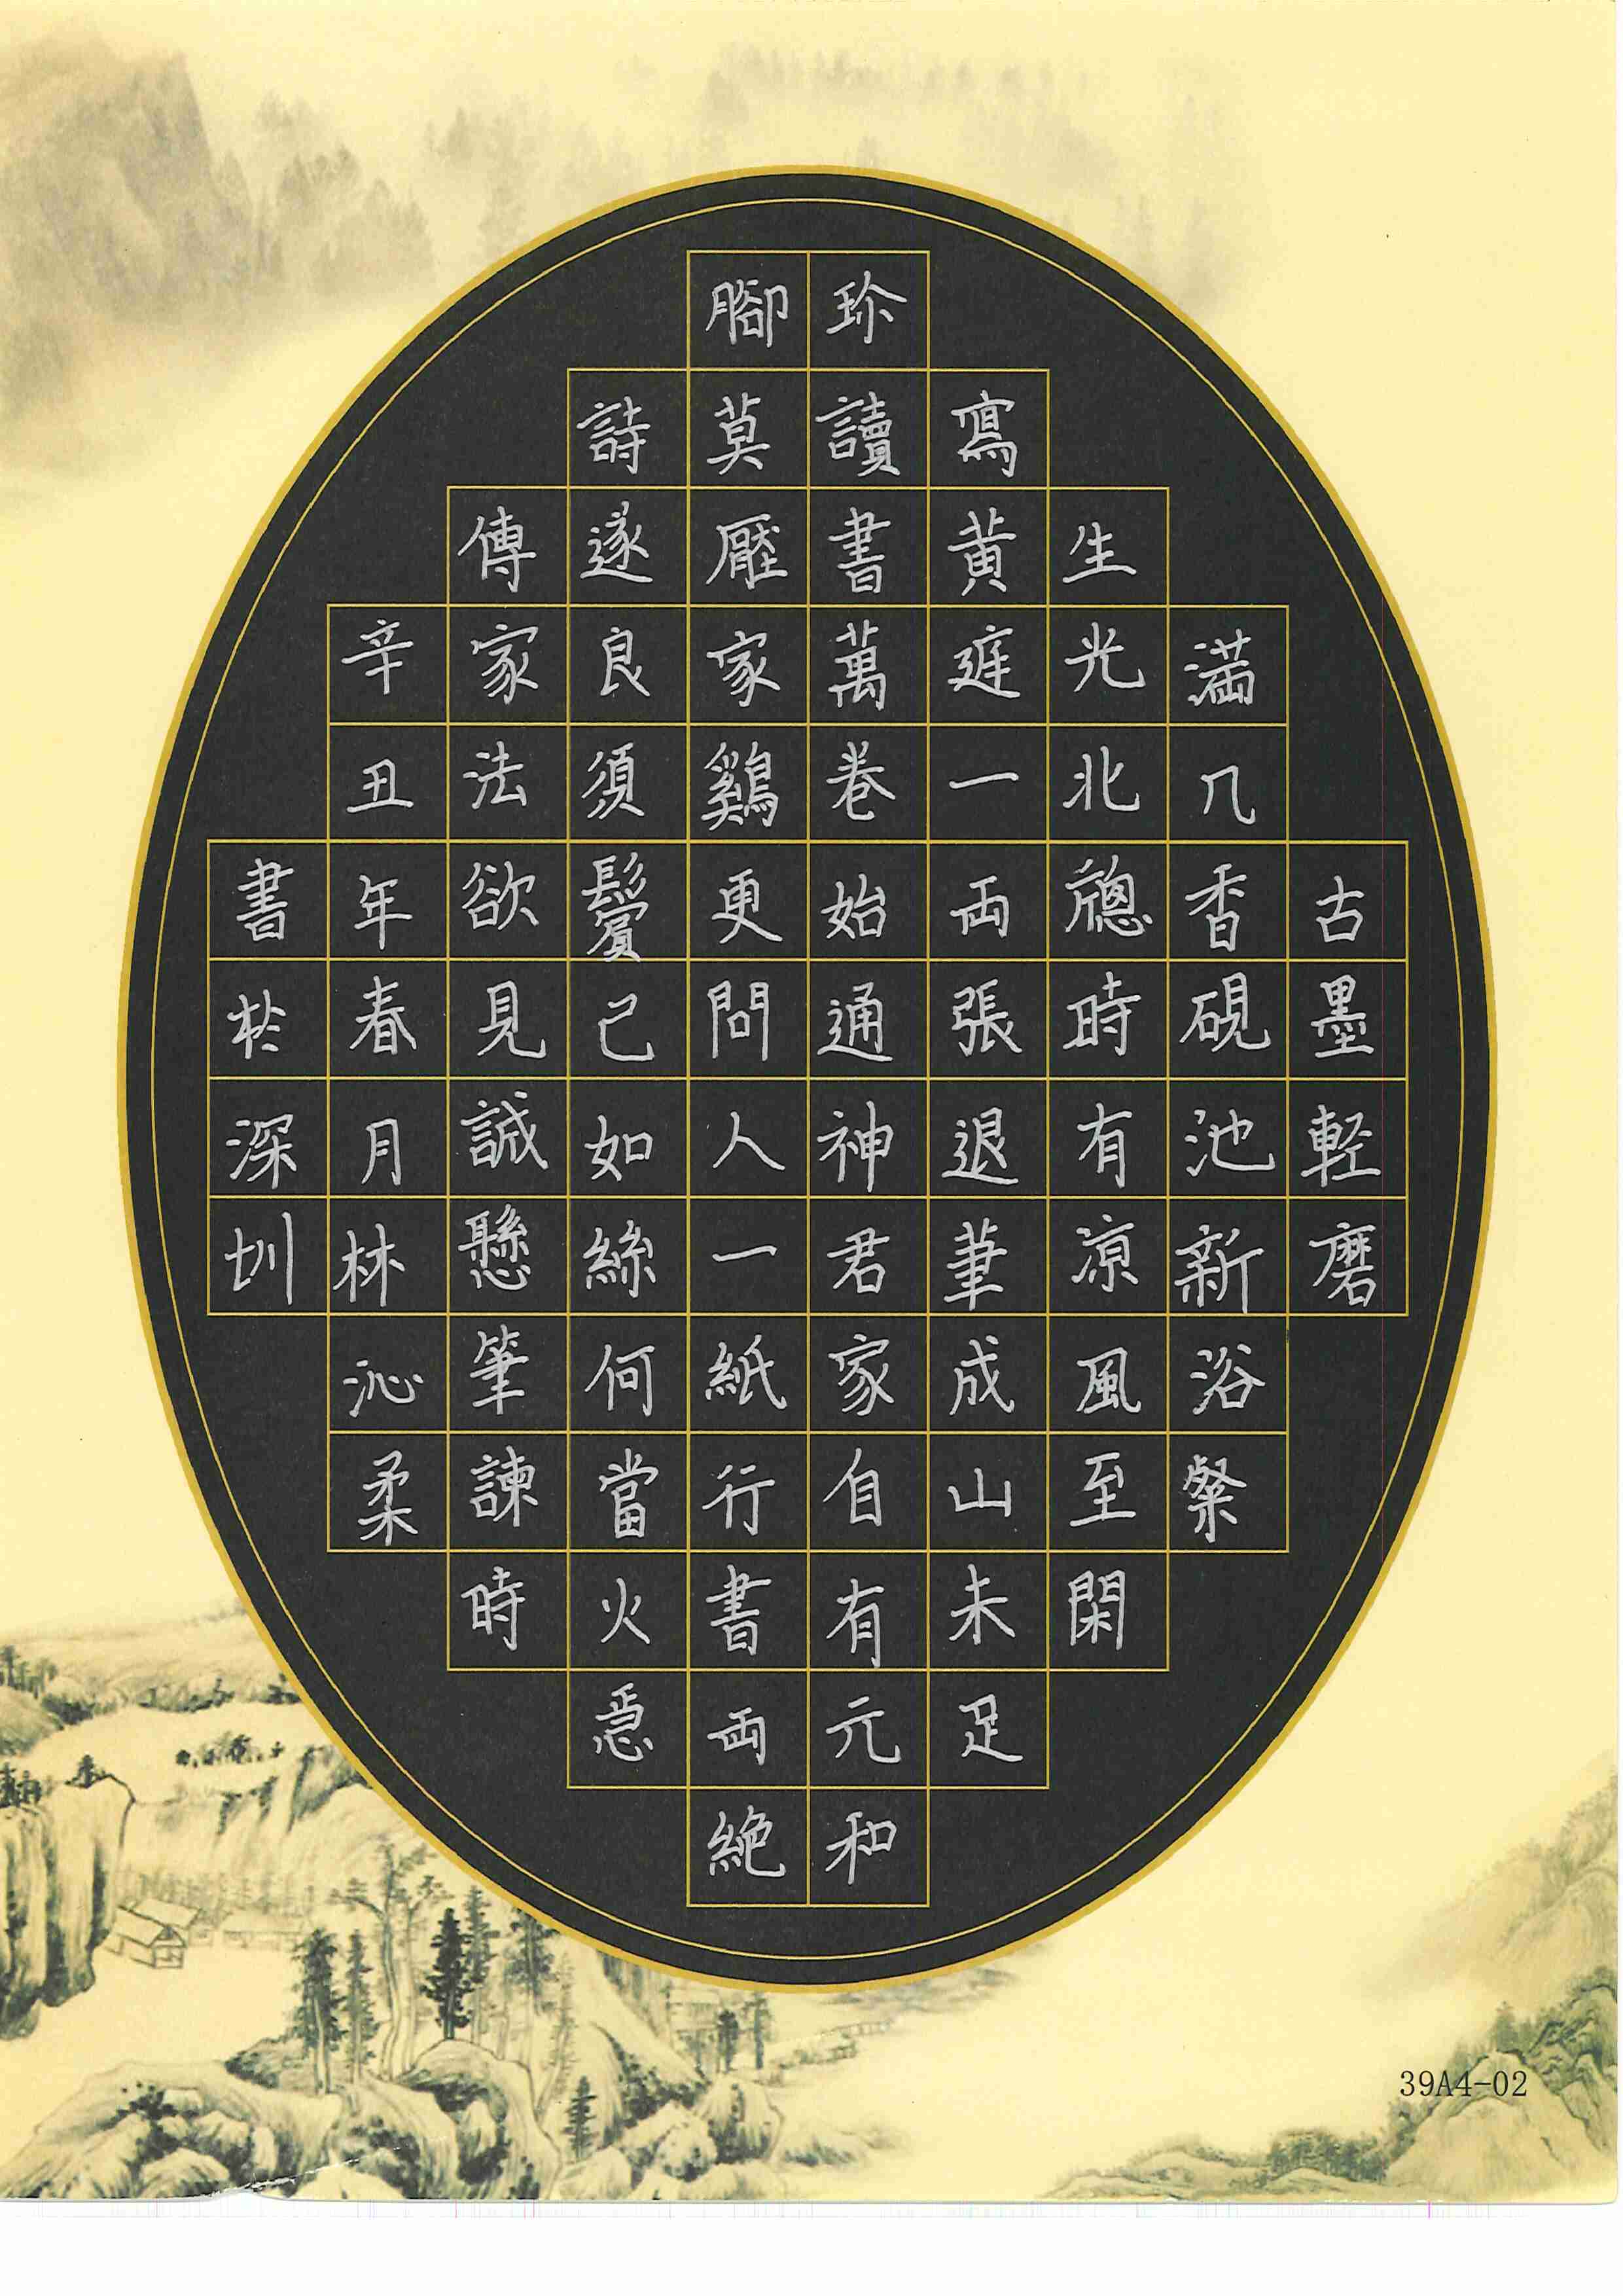 古墨軽磨
満几香硯池新浴粲
生光北窻時有凉風至閑
寫黄庭一両張退筆成山未足
珍讀書萬卷始通神君家自有元和
腳莫壓家鷄更問人一紙行書両絶
詩遂良須鬢已如絲何當火急
傳家法欲見誠懸筆諫時
辛丑年春月林沁柔
書於深圳
39A4-02